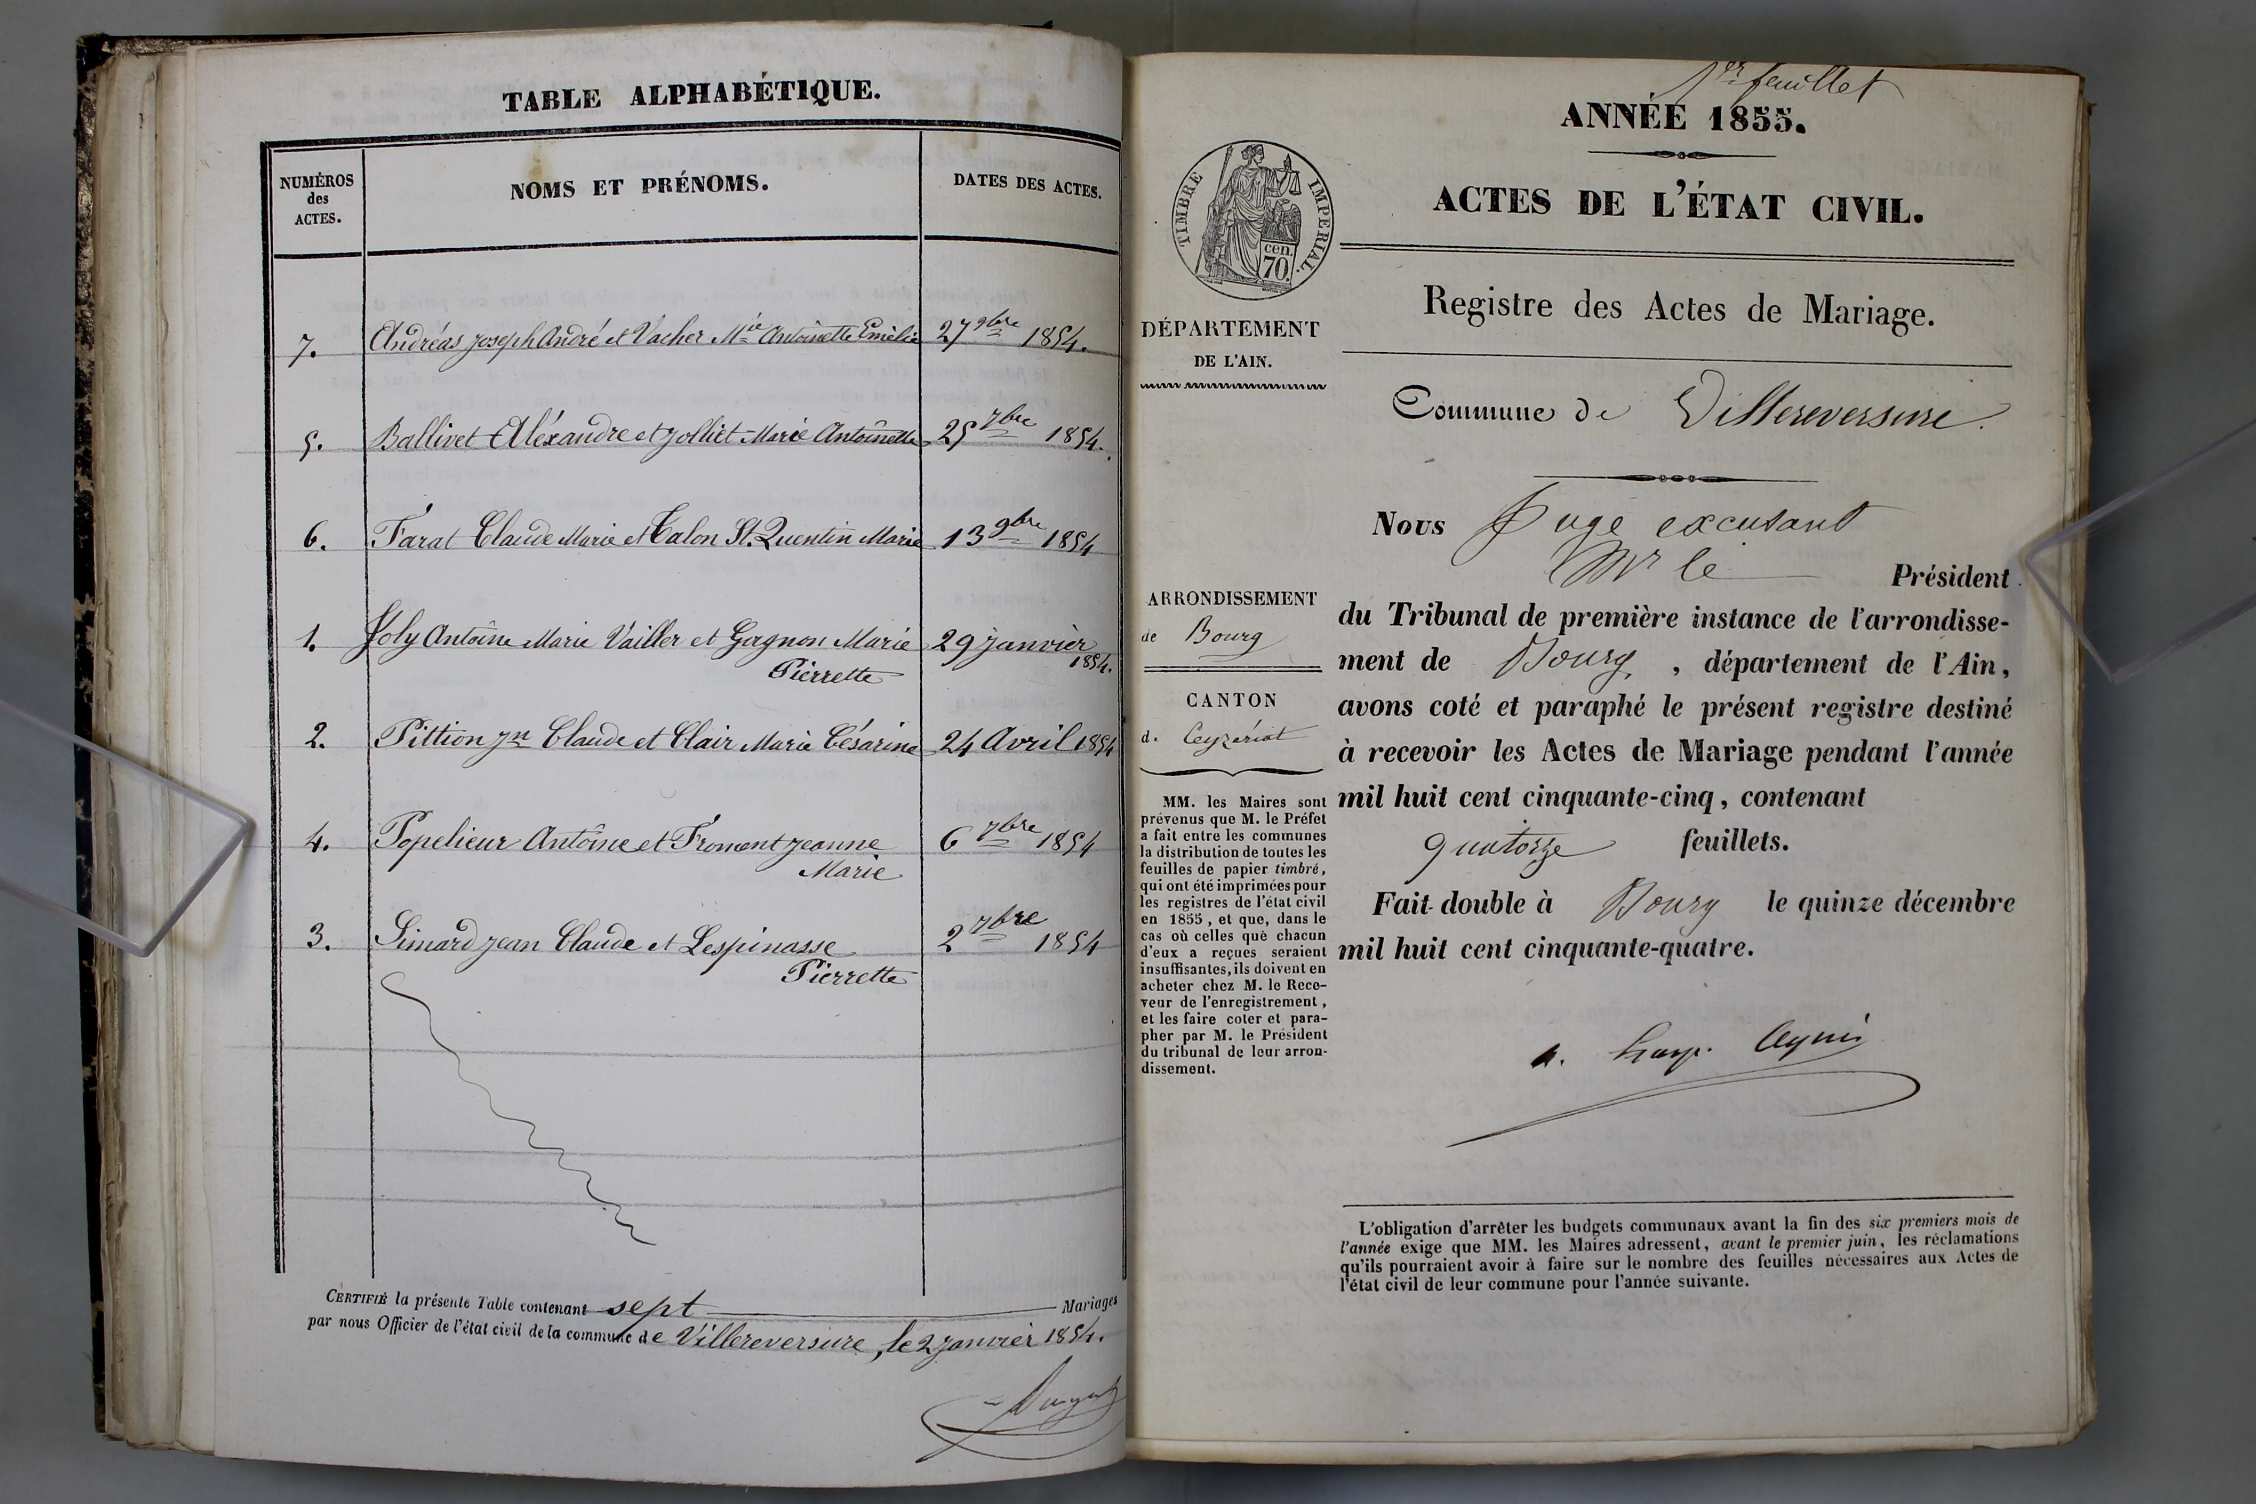 TABLE ALPHABÉTIQUE.
NUMÉROS des ACTES.
NOMS ET PRÉNOMS.
DATES DES ACTES.
7. Andréas Joseph André et Vacher Mie Antoinette Emélie 27 9bre 1854.
5. Ballivet Aléxandre et Jolliet Marie Antoinette 25 7bre 1854.
6. Farat Claude Marie et Talon St. Quentin Marie 13 9bre 1854
1. Joly Antoine Marie Vailler et Gagnon Marie 29 Janvier
Pierrette 1854.
2. Pittion Jn Claude et Clair Marie Césarine 24 Avril 1854
4. Popelieur Antoine et Froment Jeanne 6 7bre 1854
Marie
3. Simard Jean Claude et Lespinasse 2 7bre 1854
Pierrette
CERTIFIÉ la présente Table contenant sept Mariages
par nous Officier de l'état civil de la commune de Villereversure, le 2 Janvier 1854.
1er feuillet
ANNÉE 1855.
ACTES DE L'ÉTAT CIVIL.
TIMBRE IMPERIAL.
cen.
70.
Registre des Actes de Mariage.
DÉPARTEMENT
DE L'AIN.
Commune de Villereversure.
Nous Juge excusant
Mr le Président
du Tribunal de première instance de l'arrondisse-
ment de Bourg, département de l'Ain,
avons coté et paraphé le présent registre destiné
à recevoir les Actes de Mariage pendant l'année
mil huit cent cinquante-cinq, contenant
quatorze feuillets.
Fait double à Bourg le quinze décembre
mil huit cent cinquante-quatre.
ARRONDISSEMENT
de Bourg
CANTON
d. Ceyzériat
MM. les Maires sont
prévenus que M. le Préfet
a fait entre les communes
la distribution de toutes les
feuilles de papier timbré,
qui ont été imprimées pour
les registres de l'état civil
en 1855, et que, dans le
cas où celles què chacun
d'eux a reçues seraient
insuffisantes, ils doivent en
acheter chez M. le Rece-
veur de l'enregistrement,
et les faire coter et para-
pher par M. le Président
du tribunal de leur arron-
dissement.
L'obligation d'arrêter les budgets communaux avant la fin des six premiers mois de
l'année exige que MM. les Maires adressent, avant le premier juin, les réclamations
qu'ils pourraient avoir à faire sur le nombre des feuilles nécessaires aux Actes de
l'état civil de leur commune pour l'année suivante.